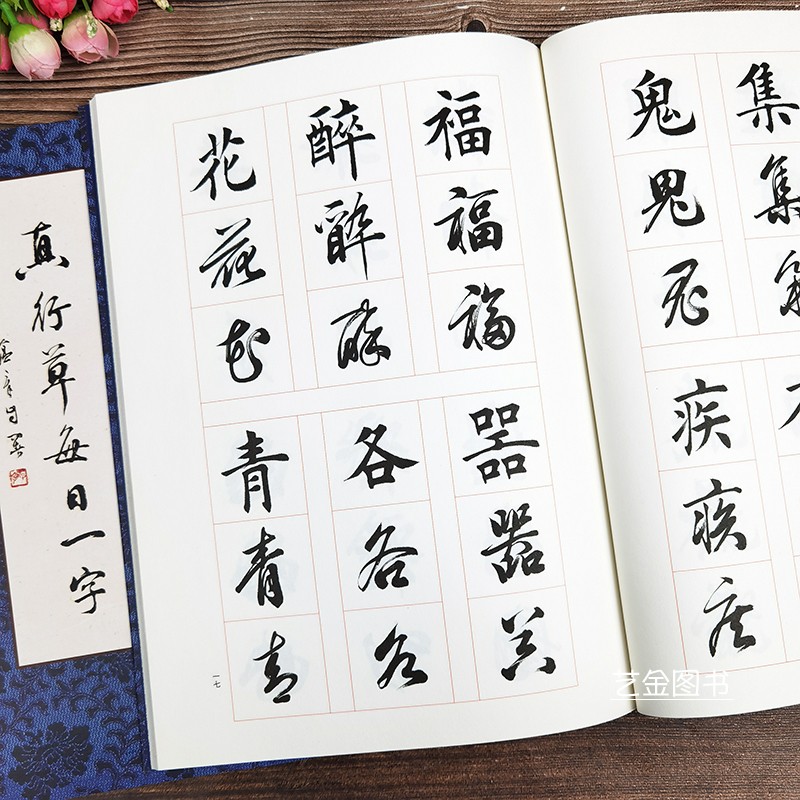 真行草每日一字
集集集
鬼鬼鬼
疾疾疾
福福福
醉醉醉
花花花
器器器
各各各
青青青
一七
艺金图书